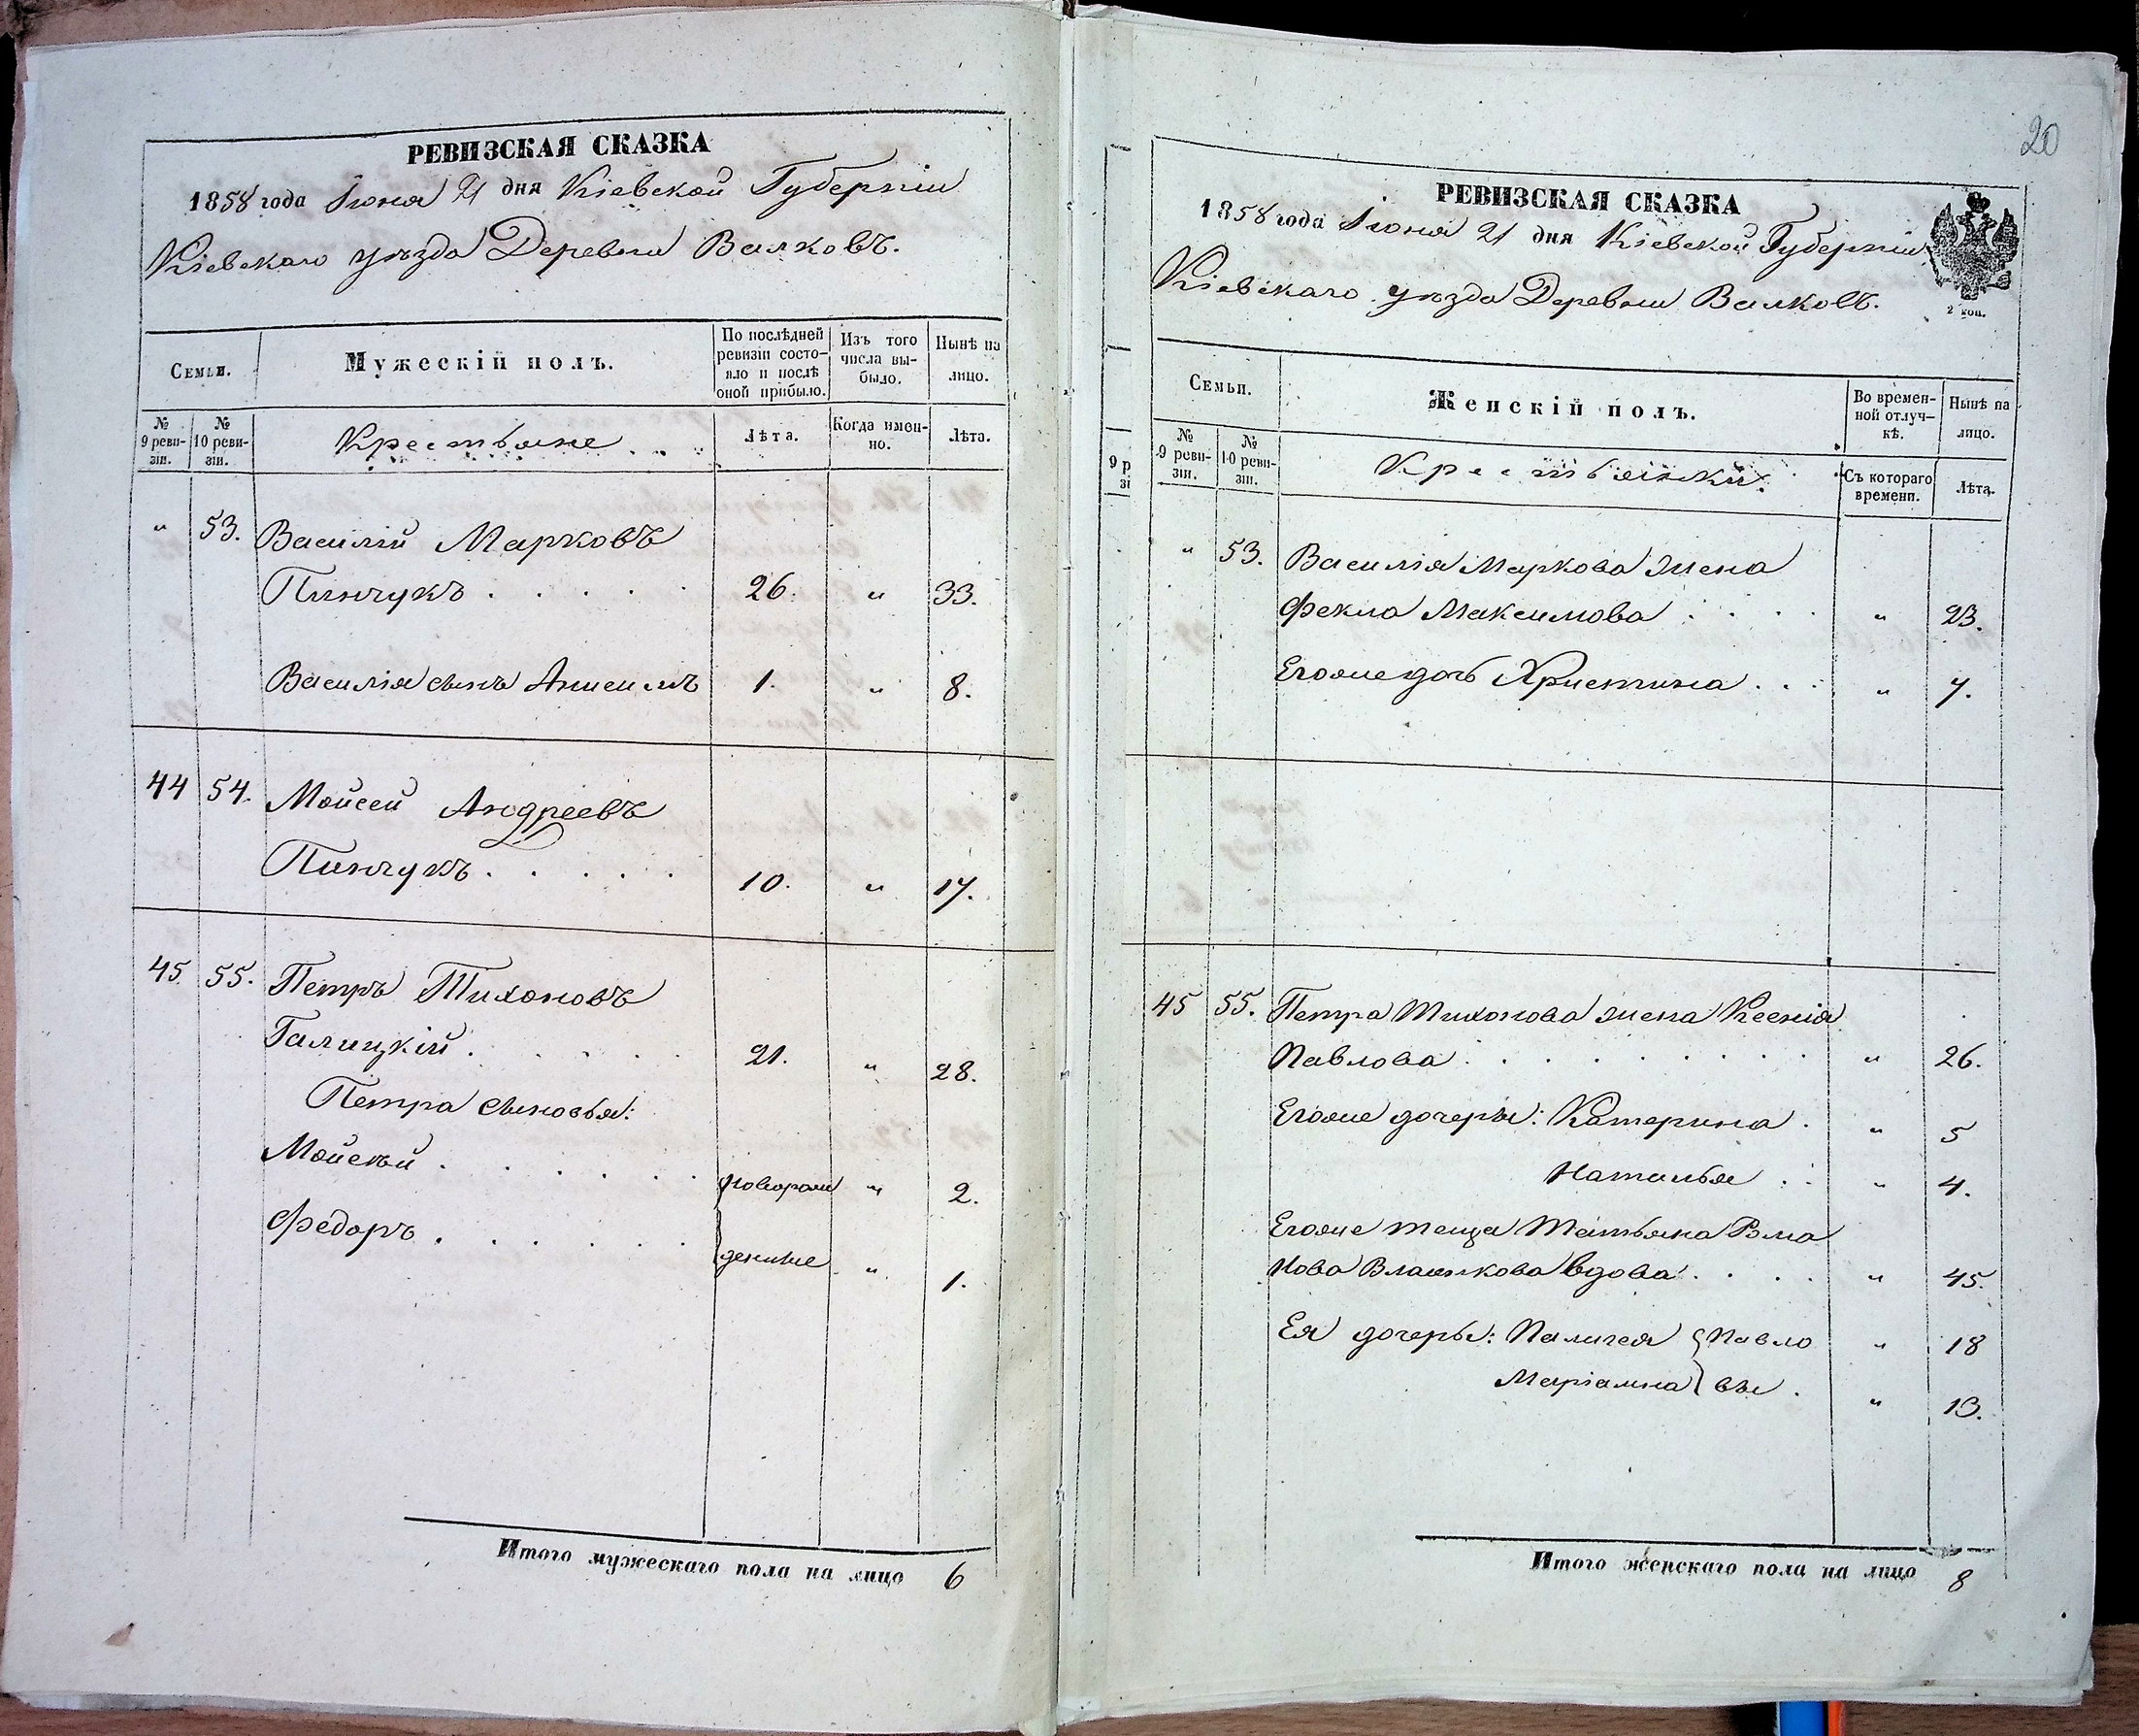 РЕВИЗСКАЯ СКАЗКА
1858 года Іюня 21 дня Кіевской Губерніи
Кіевскаго уѣзда Деревни Валковъ.
Семьи.
Мужескій полъ.
По послѣдней ревизіи состояло и послѣ оной прибыло.
Изъ того числа выбыло.
Нынѣ на лицо.
№ 9 ревизіи.
№ 10 ревизіи.
Крестьяне
Лѣта.
Когда именно.
Лѣта.
" 53. Василій Марковъ
Пинчукъ . . . . . 26. " 33.
Василія сынъ Анисимъ 1. " 8.
44 54. Мойсей Андреевъ
Пинчукъ . . . . . 10. " 17.
45 55. Петръ Тихоновъ
Галицкій . . . . . 21. " 28.
Петра сыновья:
Мойсѣй . . . . . . новорож " 2.
Федоръ . . . . . . денные " 1.
Итого мужескаго пола на лицо 6
20
РЕВИЗСКАЯ СКАЗКА
1858 года Іюня 21 дня Кіевской Губерніи
Кіевскаго уѣзда Деревни Валковъ.
2 коп.
Семьи.
Женскій полъ.
Во временной отлучкѣ.
Нынѣ на лицо.
9 р
зі
№ 9 ревизіи.
№ 10 ревизіи.
Крестьянки.
Съ котораго времени.
Лѣта.
" 53. Василія Маркова жена
Фекла Максимова . . . . " 23.
Егоже дочь Христина . . . " 7.
45 55. Петра Тихонова жена Ксенія
Павлова . . . . . . . . . " 26.
Егоже дочери: Катерина . " 5
Наталья . . " 4.
Егоже теща Татьяна Рма
нова вдова . . . . " 45.
Ея дочери: Палигея } Павло " 18
Маріамна } вы . " 13.
Итого женскаго пола на лицо 8